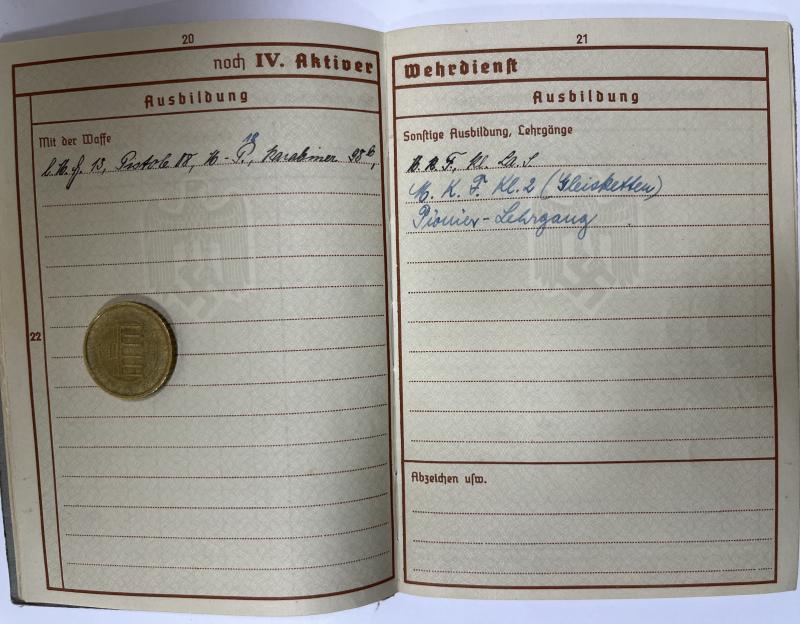 20
noch IV. Aktiver
Ausbildung
Mit der Waffe
l. M. G. 13, Pistole 08, M-P. 18, Karabiner 98b,
22
21
Wehrdienst
Ausbildung
Sonstige Ausbildung, Lehrgänge
M. K. F. Kl. 2 (Gleisketten)
Pionier-Lehrgang
Abzeichen usw.